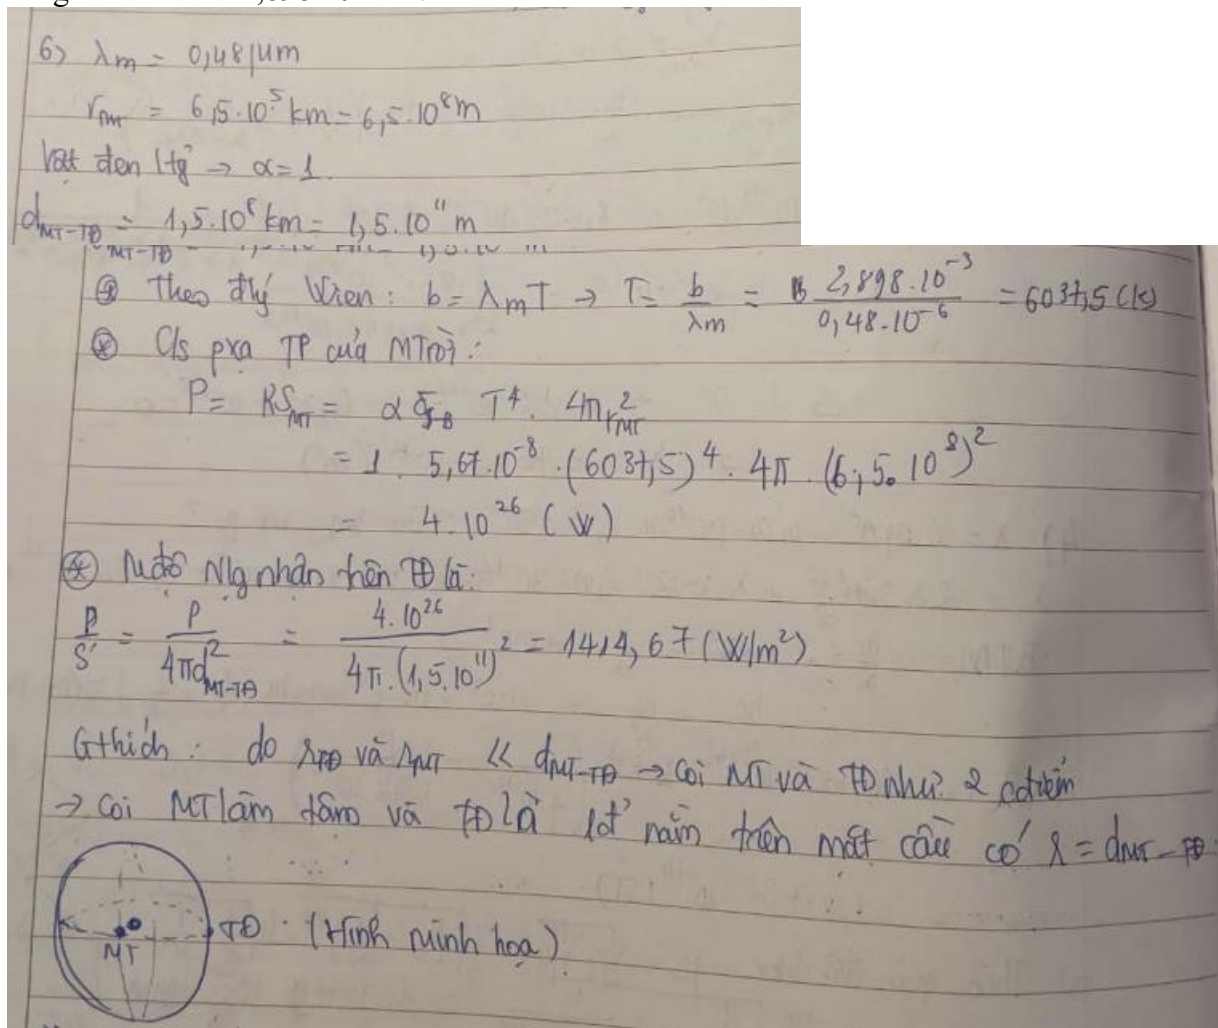 6) λm = 0,48 μm
rMT = 6,5.10⁵ km = 6,5.10⁸ m
Vật đen ltg̉ → α = 1.
dMT-TĐ = 1,5.10⁸ km = 1,5.10¹¹ m
⊛ Theo đlý Wien: b = λmT → T = b/λm = 2,898.10⁻³/0,48.10⁻⁶ = 6037,5 (K)
⊛ C/s pxạ TP của MTrời:
P = RS_MT = α σ_S-B T⁴. 4πr²_MT
= 1 . 5,67.10⁻⁸ . (6037,5)⁴. 4π . (6,5.10⁸)²
= 4.10²⁶ (W)
⊛ Mđộ Nlg nhận trên TĐ là:
P/S' = P/4πd²_MT-TĐ = 4.10²⁶/4π.(1,5.10¹¹)² = 1414,67 (W/m²)
Gthích: do rTĐ và rMT << dMT-TĐ → Coi MT và TĐ như 2 cđiểm
→ Coi MT làm tâm và TĐ là 1đ' nằm trên mặt cầu có R = dMT-TĐ
MT TĐ (Hình minh họa)